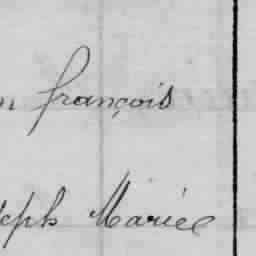 n françois
seph Marie